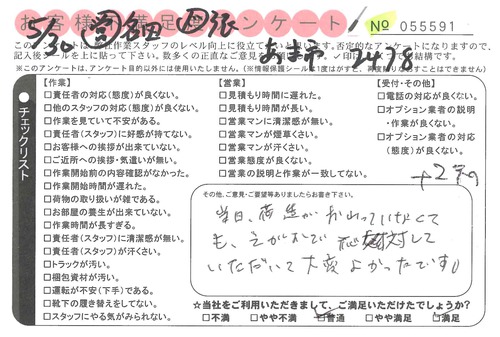 お客様満足度アンケート！
№ 055591
5/30
あま市
2478
このアンケートは
記入後シールを上に貼って下さい。
※このアンケートは、アンケート目的以外には使用いたしません。
チェックリスト
【作業】
□責任者の対応(態度)が良くない。
□他のスタッフの対応(態度)が良くない。
□作業を見ていて不安がある。
□責任者(スタッフ)に好感が持てない。
□お客様への挨拶が出来ていない。
□ご近所への挨拶・気遣いが無い。
□作業開始前の内容確認がなかった。
□作業開始時間が遅れた。
□荷物の取り扱いが雑である。
□お部屋の養生が出来ていない。
□作業時間が長すぎる。
□責任者(スタッフ)に清潔感が無い。
□責任者(スタッフ)が汗くさい。
□トラックが汚い。
□梱包資材が汚い。
□運転が不安(下手)である。
□靴下の履き替えをしてない。
□スタッフにやる気がみられない。
【営業】
□見積もり時間に遅れた。
□見積もり時間が長い。
□営業マンに清潔感が無い。
□営業マンが煙草くさい。
□営業マンが汗くさい。
□営業態度が良くない。
□営業の説明と作業が一致してない。
【受付・その他】
□電話の対応が良くない。
□オプション業者の説明
・作業が良くない。
□オプション業者の対応
(態度)が良くない。
その他、ご意見・ご要望等ありましたらお書き下さい。
当日、荷造が終わっていなくて
も、えがおで
対して
いただいて大変よかったです。
☆当社をご利用いただきまして、ご満足いただけたでしょうか？
□不満 □やや不満 □普通 □やや満足 □満足